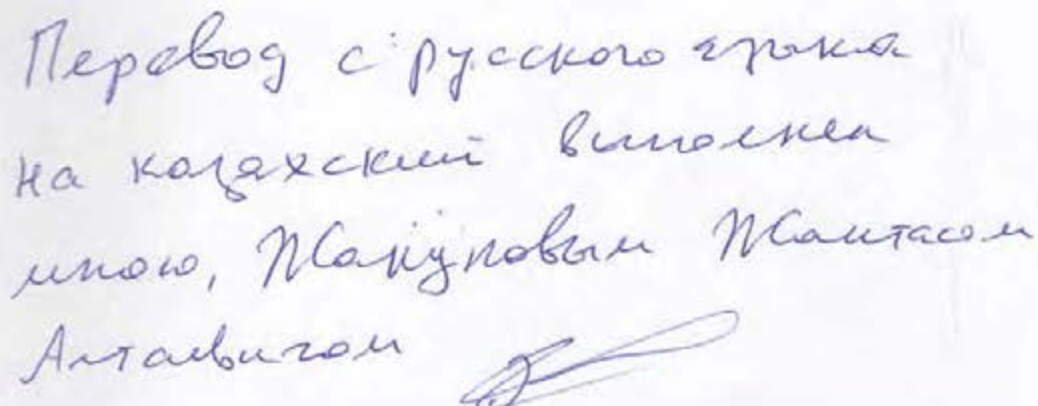 Перевод с русского языка
на казахский выполнен
мною, Жакуповым Жантасом
Алтаевичом